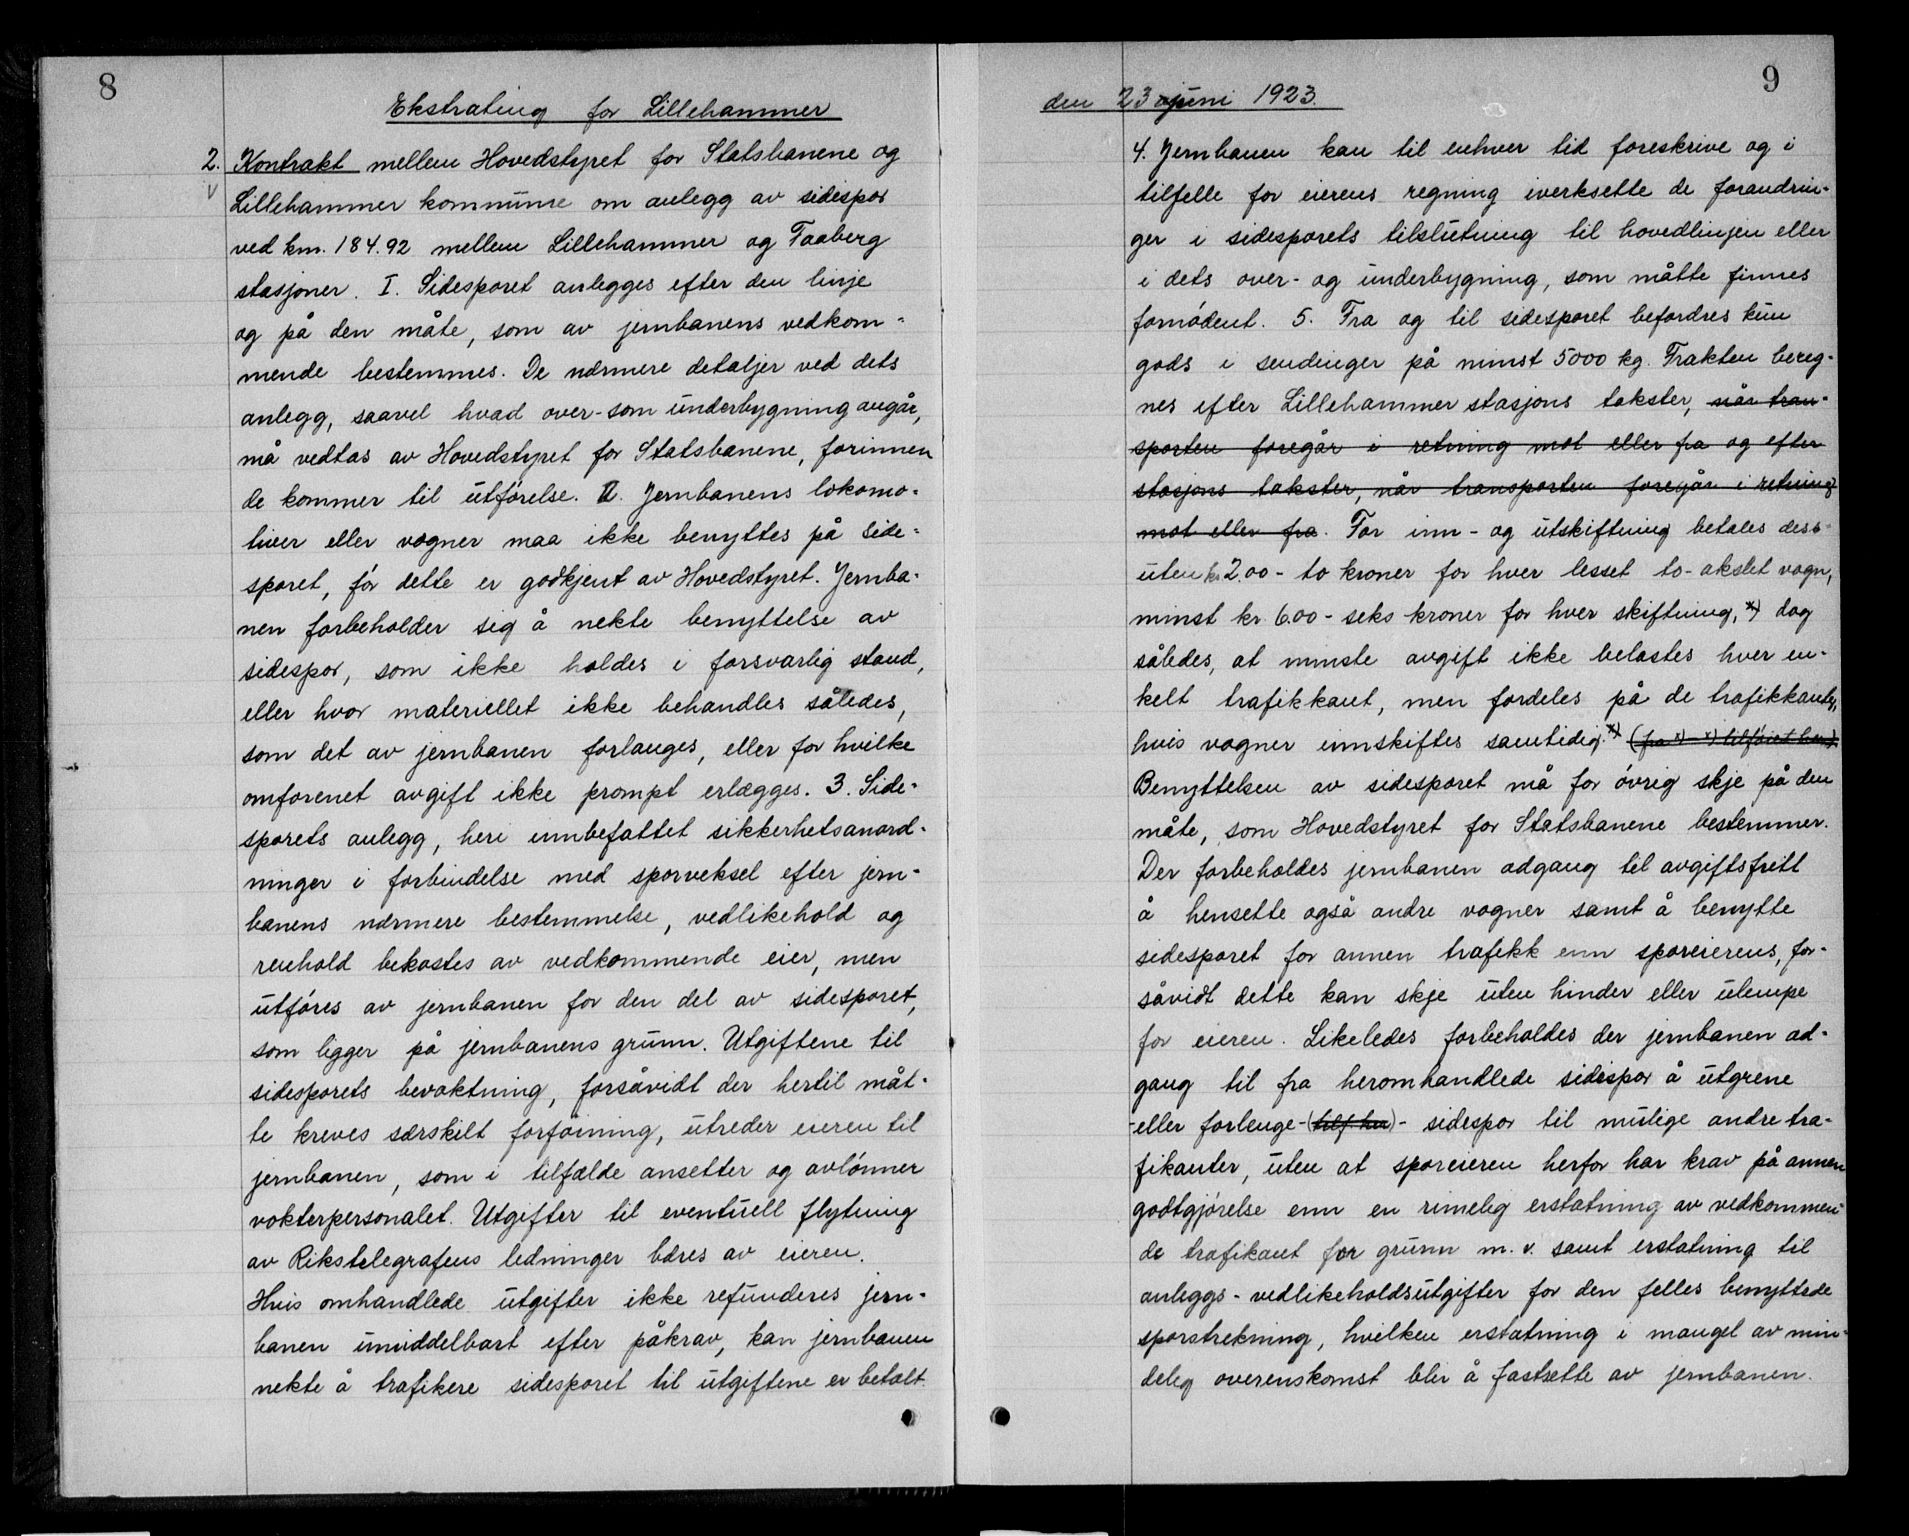 8
Ekstrating for Lillehammer
2. Kontrakt mellem Hovedstyret for Statsbanene og
Lillehammer kommune om anlegg av sidespor
ved km. 184.92 mellem Lillehammer og Faaberg
stasjoner. I. Sidesporet anlegges efter den linje
og på den måte, som av jernbanens vedkom-
mende bestemmes. De nærmere detaljer ved dets
anlegg, saavel hvad over-som underbygning angår,
må vedtas av Hovedstyret for Statsbanene, forinnen
de kommer til utførelse. 2. Jernbanens lokomo-
tiver eller vogner maa ikke benyttes på side-
sporet, før dette er godkjent av Hovedstyret. Jernba-
nen forbeholder sig å nekte benyttelse av
sidespor, som ikke holdes i forsvarlig stand,
eller hvor materiellet ikke behandles således,
som det av jernbanen forlanges, eller for hvilke
omforenet avgift ikke prompt erlægges. 3. Side-
sporets anlegg, heri innbefattet sikkerhetsanord-
ninger i forbindelse med sporveksel efter jern-
banens nærmere bestemmelse, vedlikehold og
renhold bekostes av vedkommende eier, men
utføres av jernbanen for den del av sidesporet,
som ligger på jernbanens grunn. Utgiftene til
sidesporets bevoktning, forsåvidt der hertil måt-
te kreves særskilt forføining, utreder eieren til
jernbanen, som i tilfælde ansetter og avlønner
vokterpersonalet. Utgifter til eventuell flytning
av Rikstelegrafens ledninger bæres av eieren.
Hvis omhandlede utgifter ikke refunderes jern-
banen umiddelbart efter påkrav, kan jernbanen
nekte å trafikere sidesporet til utgiftene er betalt.
9
den 23 juni 1923.
4. Jernbanen kan til enhver tid foreskrive og i
tilfelle for eierens regning iverksette de forandrin-
ger i sidesporets tilslutning til hovedlinjen eller
i dets over- og underbygning, som måtte finnes
fornødent. 5. Fra og til sidesporet befordres kun
gods i sendinger på minst 5000 kg. Frakten bereg-
nes efter Lillehammer stasjons takster, når tran-
sporten foregår i retning mot eller fra og efter
stasjons takster, når transporten foregår i retning
mot eller fra. For inn- og utskiftning betales dess-
uten kr. 2.00 - to kroner for hver lesset to-akslet vogn,
minst kr. 6.00 - seks kroner for hver skiftning, x) dog
således, at minste avgift ikke belastes hver en-
kelt trafikkant, men fordeles på de trafikkanter,
hvis vogner innskiftes samtidig. x) (fra x) - x) tilføiet her)
Benyttelsen av sidesporet må for øvrig skje på den
måte, som Hovedstyret for Statsbanene bestemmer.
Der forbeholdes jernbanen adgang til avgiftsfritt
å hensette også andre vogner samt å benytte
sidesporet for annen trafikk enn sporeierens, for-
såvidt dette kan skje uten hinder eller ulempe
for eieren. Likeledes forbeholdes der jernbanen ad-
gang til fra heromhandlede sidespor å utgrene
-eller forlenge-(tilf. her)- sidespor til mulige andre tra-
fikanter, uten at sporeieren herfor har krav på annen
godtgjørelse enn en rimelig erstatning av vedkommen-
de trafikant for grunn m. v. samt erstatning til
anleggs-vedlikeholdsutgifter for den felles benyttede
sporstrekning, hvilken erstatning i mangel av min-
delig overenskomst blir å fastsette av jernbanen.